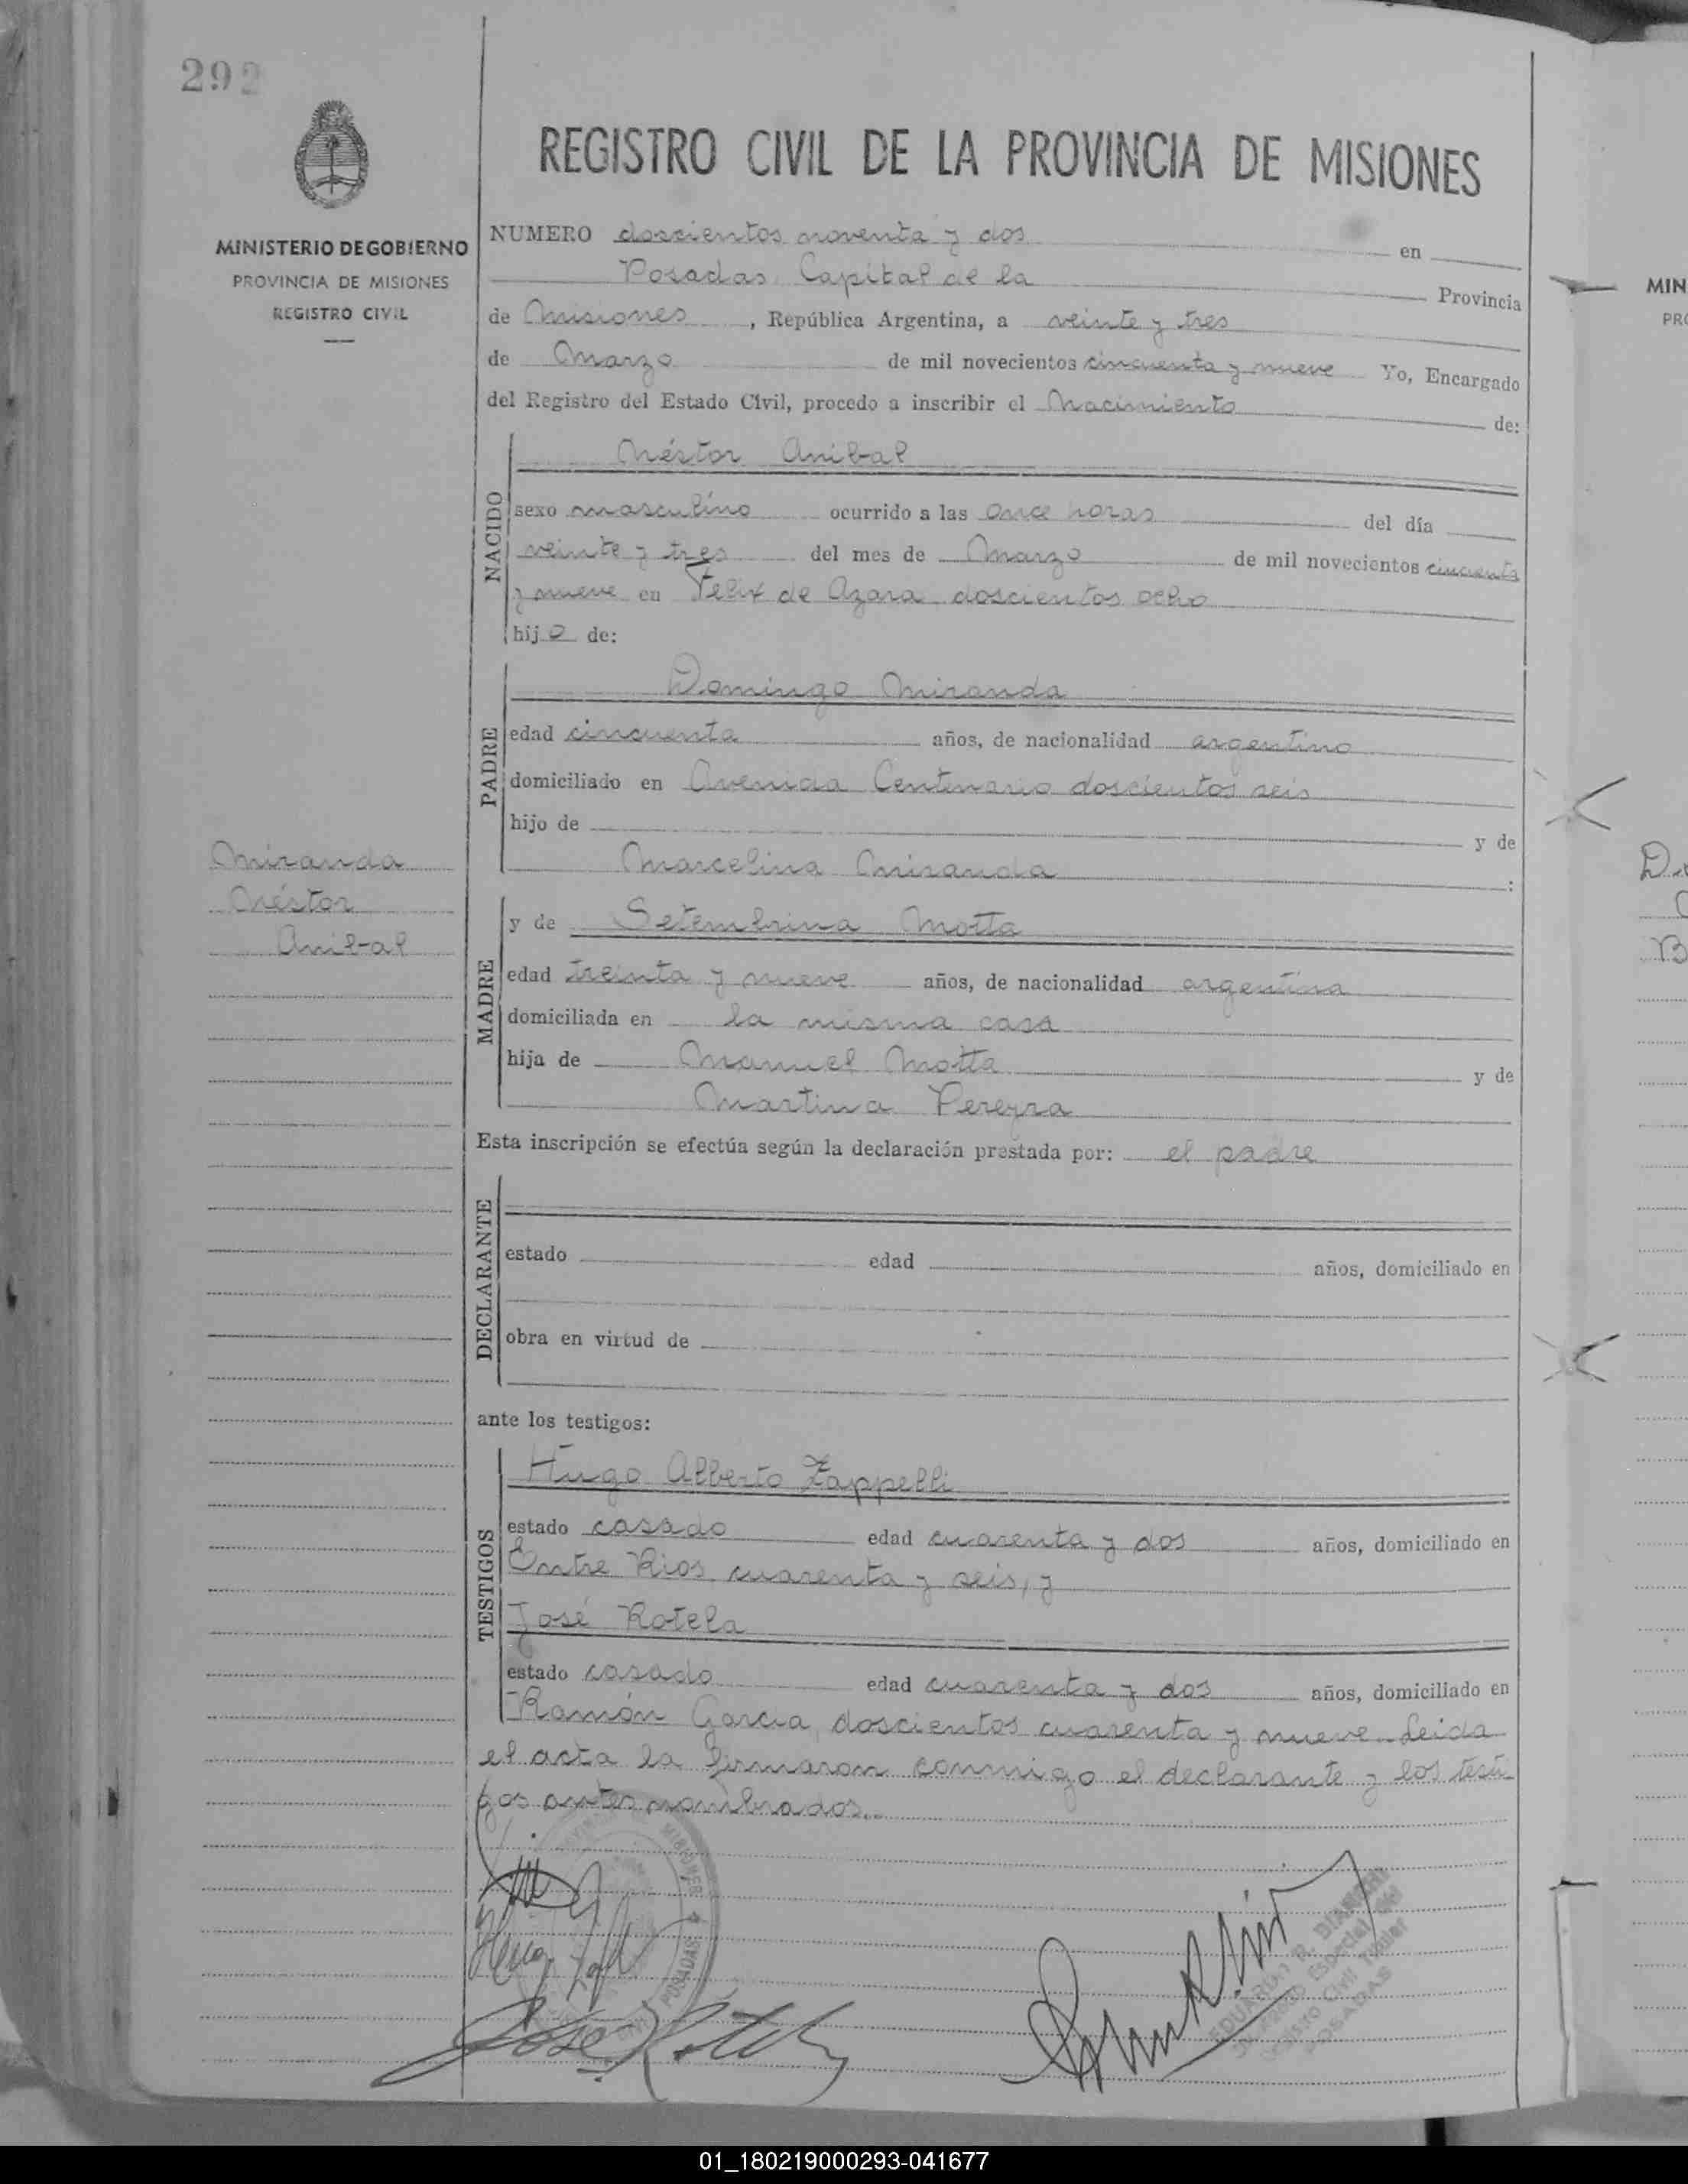 292
REGISTRO CIVIL DE LA PROVINCIA DE MISIONES
MINISTERIO DE GOBIERNO
PROVINCIA DE MISIONES
REGISTRO CIVIL
NUMERO doscientos noventa y dos en
Posadas, Capital de la Provincia
de Misiones, República Argentina, a veinte y tres
de Marzo de mil novecientos cincuenta y nueve Yo, Encargado
del Registro del Estado Civil, procedo a inscribir el Nacimiento de:
NACIDO
Néstor Anibal
sexo masculino ocurrido a las once horas del día
veinte y tres del mes de Marzo de mil novecientos cincuenta
y nueve en Felix de Azara doscientos ocho
hijo de:
PADRE
Domingo Miranda
edad cincuenta años, de nacionalidad argentino
domiciliado en Avenida Centenario doscientos seis
hijo de y de
Marcelina Miranda :
Miranda
Néstor
Anibal
MADRE
y de Setembrina Motta
edad treinta y nueve años, de nacionalidad argentina
domiciliada en la misma casa
hija de Manuel Motta y de
Martina Pereyra
Esta inscripción se efectúa según la declaración prestada por: el padre
DECLARANTE
estado edad años, domiciliado en
obra en virtud de
ante los testigos:
TESTIGOS
Hugo Alberto Zappelli
estado casado edad cuarenta y dos años, domiciliado en
Entre Rios cuarenta y seis, y
José Rotela
estado casado edad cuarenta y dos años, domiciliado en
Ramón Garcia, doscientos cuarenta y nueve. Leida
el acta la firmaron conmigo el declarante y los testi-
gos antes nombrados..
MISIONES
POSADAS
José Rotela
EDUARDO R. BIANCHI
Registro Civil Titular
POSADAS
MIN
PRO
01_180219000293-041677